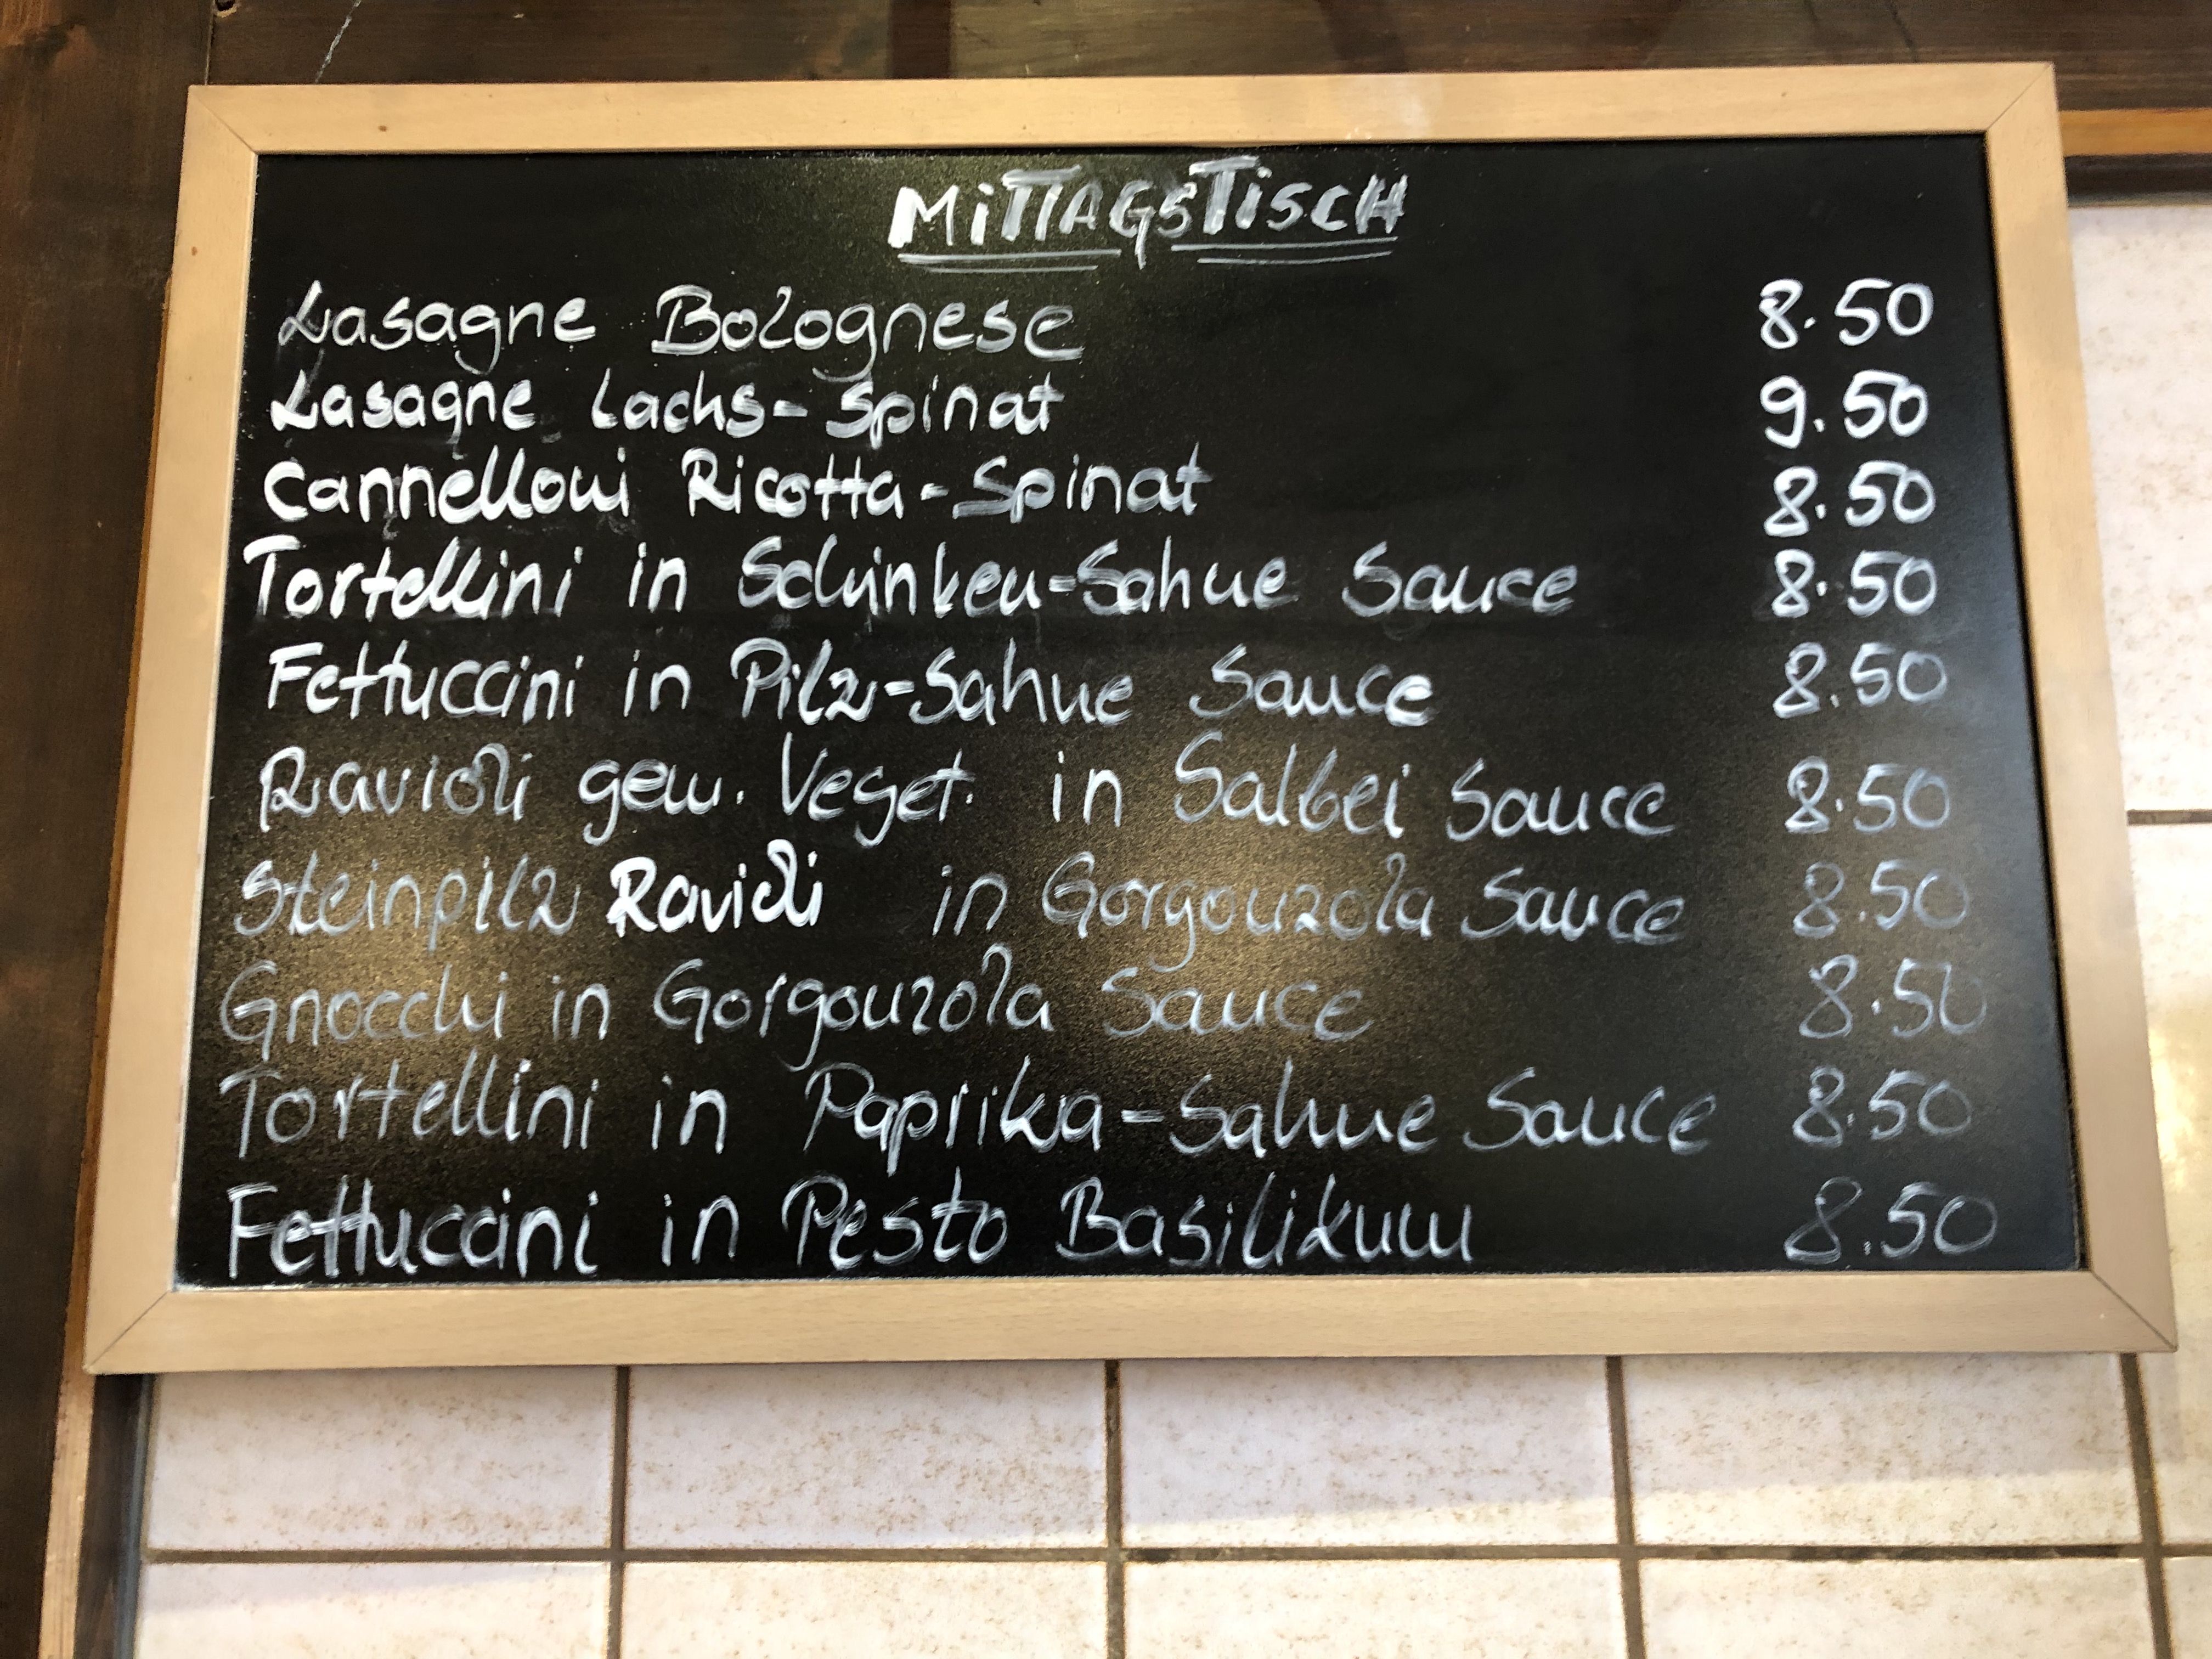 MiTTAGSTiSCH
Lasagne Bolognese 8.50
Lasagne Lachs-Spinat 9.50
Cannelloni Ricotta-Spinat 8.50
Tortellini in Schinken-Sahne Sauce 8.50
Fettuccini in Pilz-Sahne Sauce 8.50
Ravioli gem. Veget. in Salbei Sauce 8.50
Steinpilz Ravioli in Gorgonzola Sauce 8.50
Gnocchi in Gorgonzola Sauce 8.50
Tortellini in Paprika-Sahne Sauce 8.50
Fettuccini in Pesto Basilikum 8.50